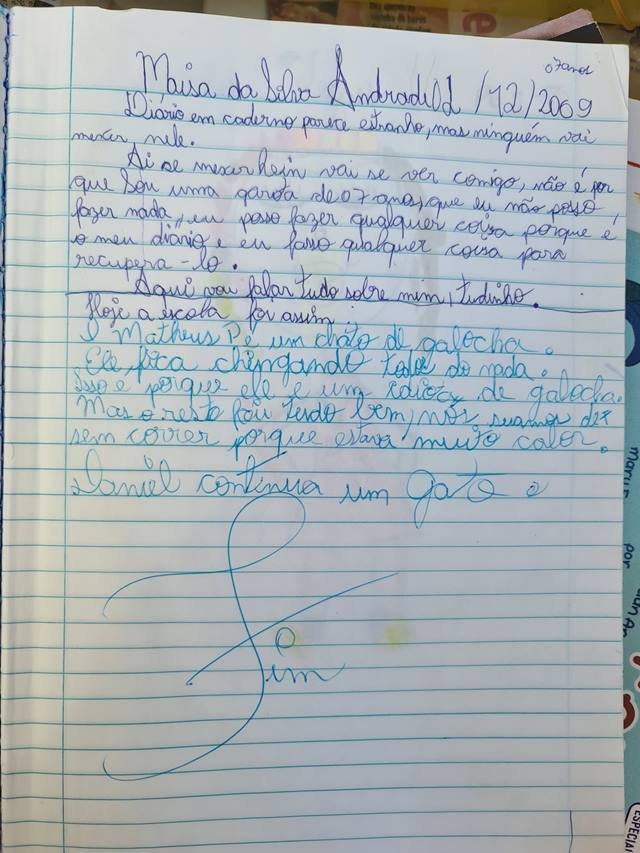 07 anos
Maisa da Silva Andrade /12/2009
Diário em caderno parece estranho, mas ninguém vai
mexer nele.
Ai se mexer hein vai se ver comigo, não é por
que sou uma garota de 07 anos, que eu não posso
fazer nada, eu posso fazer qualquer coisa porque é
o meu diário e eu fasso qualquer coisa para
recupera-lo.
Aqui vai falar tudo sobre mim, tudinho.
Hoje a escola foi assim
O Matheus P é um chato de galocha.
Ele fica chingando do nada.
Isso é porque ele é um idiota de galocha.
Mas o resto foi tudo bem, nós suamos
sem correr porque estava muito calor.
Daniel continua um gato e
Fim
por
ESPECIAL